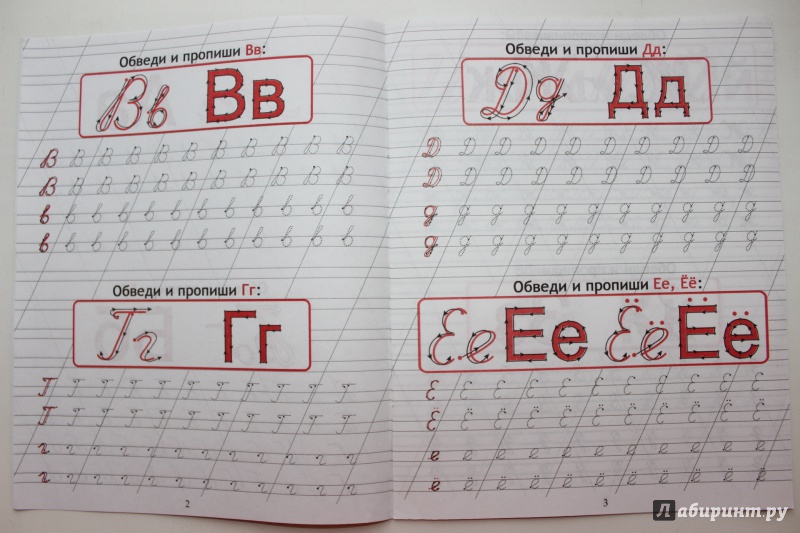 Обведи и пропиши Вв:
Вв Вв
В В В В В В В В В В В
В В В В В В В В В В В
в в в в в в в в в в в в
в в в в в в в в в в в в
Обведи и пропиши Гг:
Гг Гг
Г Г Г Г Г Г Г Г Г Г Г
Г Г Г Г Г Г Г Г Г Г Г
г г г г г г г г г г г
г г г г г г г г г г г
2
Обведи и пропиши Дд:
Дд Дд
Д Д Д Д Д Д Д Д Д Д
Д Д Д Д Д Д Д Д Д Д
д д д д д д д д д д д
д д д д д д д д д д д
Обведи и пропиши Ее, Ёё:
Ее Ее Ёё Ёё
Е Е Е Е Е Е Е Е Е Е Е
Ё Ё Ё Ё Ё Ё Ё Ё Ё Ё Ё
е е е е е е е е е е е
ё ё ё ё ё ё ё ё ё ё ё
3
Лабиринт.ру